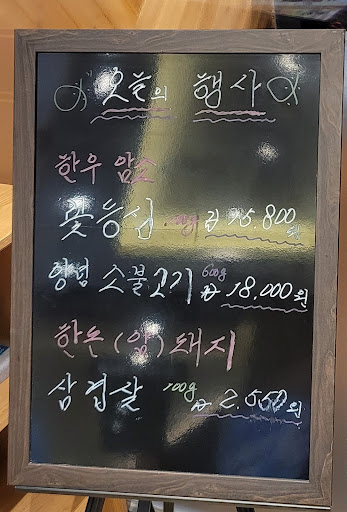 오늘의 행사
한우 암소
꽃등심 100g 15,800원
양념 소불고기 600g 18,000원
한돈 (암) 돼지
삼겹살 100g 2,550원